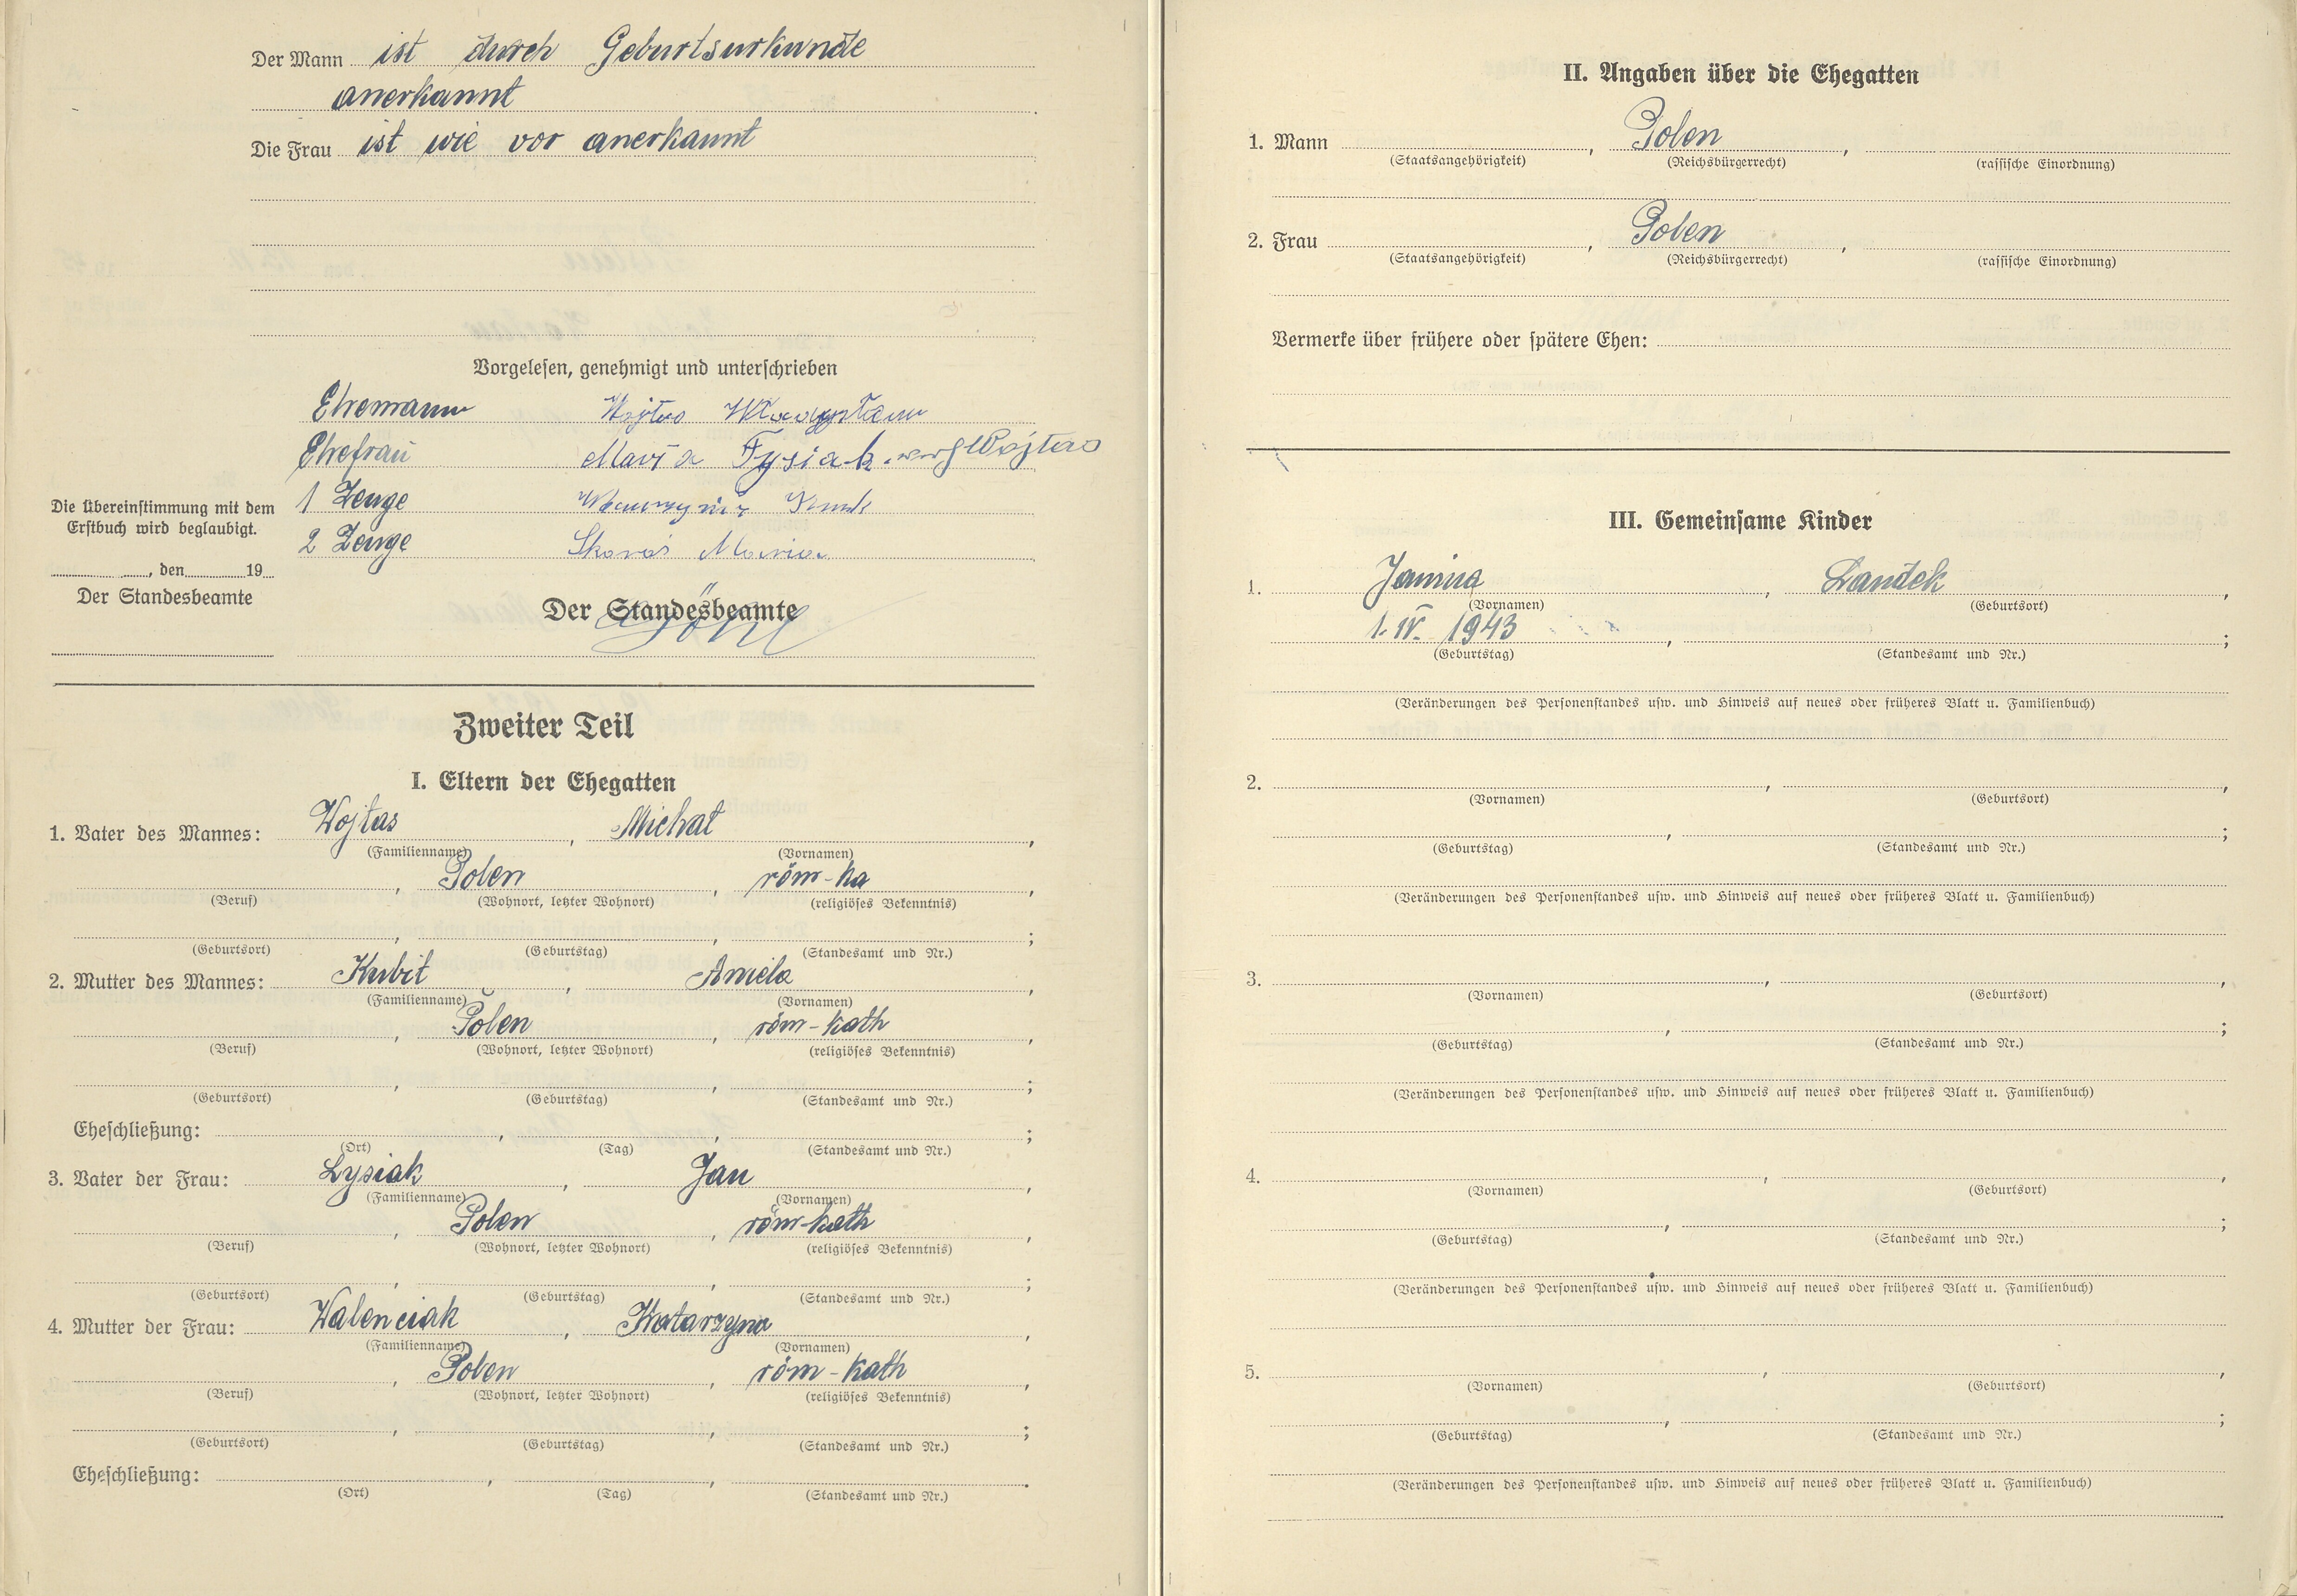 Der Mann ist durch Geburtsurkunde
anerkannt
Die Frau ist wie vor anerkannt
Vorgelesen, genehmigt und unterschrieben
Ehemann Wojtas
Ehefrau Maria Łysiak Wojtas
1 Zeuge
2 Zeuge Maria
Die Übereinstimmung mit dem
Erstbuch wird beglaubigt.
, den 19
Der Standesbeamte
Der Standesbeamte
Zweiter Teil
I. Eltern der Ehegatten
1. Vater des Mannes: Wojtas , Michał ,
(Familienname) (Vornamen)
, Polen , röm-ka ,
(Beruf) (Wohnort, letzter Wohnort) (religiöses Bekenntnis)
, , ;
(Geburtsort) (Geburtstag) (Standesamt und Nr.)
2. Mutter des Mannes: Kubit , Aniela ,
(Familienname) (Vornamen)
, Polen , röm-kath ,
(Beruf) (Wohnort, letzter Wohnort) (religiöses Bekenntnis)
, , ;
(Geburtsort) (Geburtstag) (Standesamt und Nr.)
Eheschließung: , , ;
(Ort) (Tag) (Standesamt und Nr.)
3. Vater der Frau: Lysiak , Jan ,
(Familienname) (Vornamen)
, Polen , röm-kath ,
(Beruf) (Wohnort, letzter Wohnort) (religiöses Bekenntnis)
, , ;
(Geburtsort) (Geburtstag) (Standesamt und Nr.)
4. Mutter der Frau: Walenciak , Katarzyna ,
(Familienname) (Vornamen)
, Polen , röm-kath ,
(Beruf) (Wohnort, letzter Wohnort) (religiöses Bekenntnis)
, , ;
(Geburtsort) (Geburtstag) (Standesamt und Nr.)
Eheschließung: , , .
(Ort) (Tag) (Standesamt und Nr.)
II. Angaben über die Ehegatten
1. Mann , Polen ,
(Staatsangehörigkeit) (Reichsbürgerrecht) (rassische Einordnung)
2. Frau , Polen ,
(Staatsangehörigkeit) (Reichsbürgerrecht) (rassische Einordnung)
Vermerke über frühere oder spätere Ehen:
III. Gemeinsame Kinder
1. Janina , Landek ,
(Vornamen) (Geburtsort)
1. IV. 1943 , ;
(Geburtstag) (Standesamt und Nr.)
(Veränderungen des Personenstandes usw. und Hinweis auf neues oder früheres Blatt u. Familienbuch)
2. , ,
(Vornamen) (Geburtsort)
, ;
(Geburtstag) (Standesamt und Nr.)
(Veränderungen des Personenstandes usw. und Hinweis auf neues oder früheres Blatt u. Familienbuch)
3. , ,
(Vornamen) (Geburtsort)
, ;
(Geburtstag) (Standesamt und Nr.)
(Veränderungen des Personenstandes usw. und Hinweis auf neues oder früheres Blatt u. Familienbuch)
4. , ,
(Vornamen) (Geburtsort)
, ;
(Geburtstag) (Standesamt und Nr.)
(Veränderungen des Personenstandes usw. und Hinweis auf neues oder früheres Blatt u. Familienbuch)
5. , ,
(Vornamen) (Geburtsort)
, ;
(Geburtstag) (Standesamt und Nr.)
(Veränderungen des Personenstandes usw. und Hinweis auf neues oder früheres Blatt u. Familienbuch)